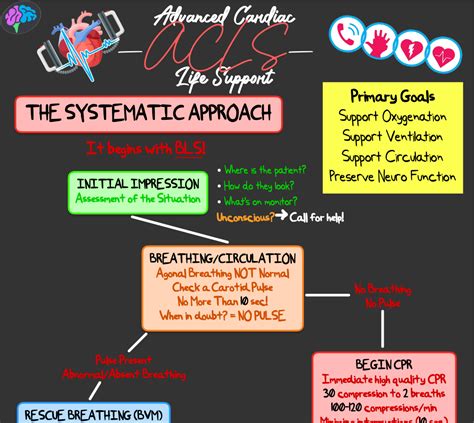 Advanced Cardiac
ACLS
Life Support
THE SYSTEMATIC APPROACH
It begins with BLS!
Primary Goals
Support Oxygenation
Support Ventilation
Support Circulation
Preserve Neuro Function
INITIAL IMPRESSION
Assessment of the Situation
• Where is the patient?
• How do they look?
• What's on monitor?
Unconscious? → Call for help!
BREATHING/CIRCULATION
Agonal Breathing NOT Normal
Check a Carotid Pulse
No More Than 10 sec!
When in doubt? = NO PULSE
No Breathing
No Pulse
Pulse Present
Abnormal/Absent Breathing
BEGIN CPR
Immediate high quality CPR
30 compression to 2 breaths
100-120 compressions/min
Minimize interruptions (10 sec)
RESCUE BREATHING (BVM)